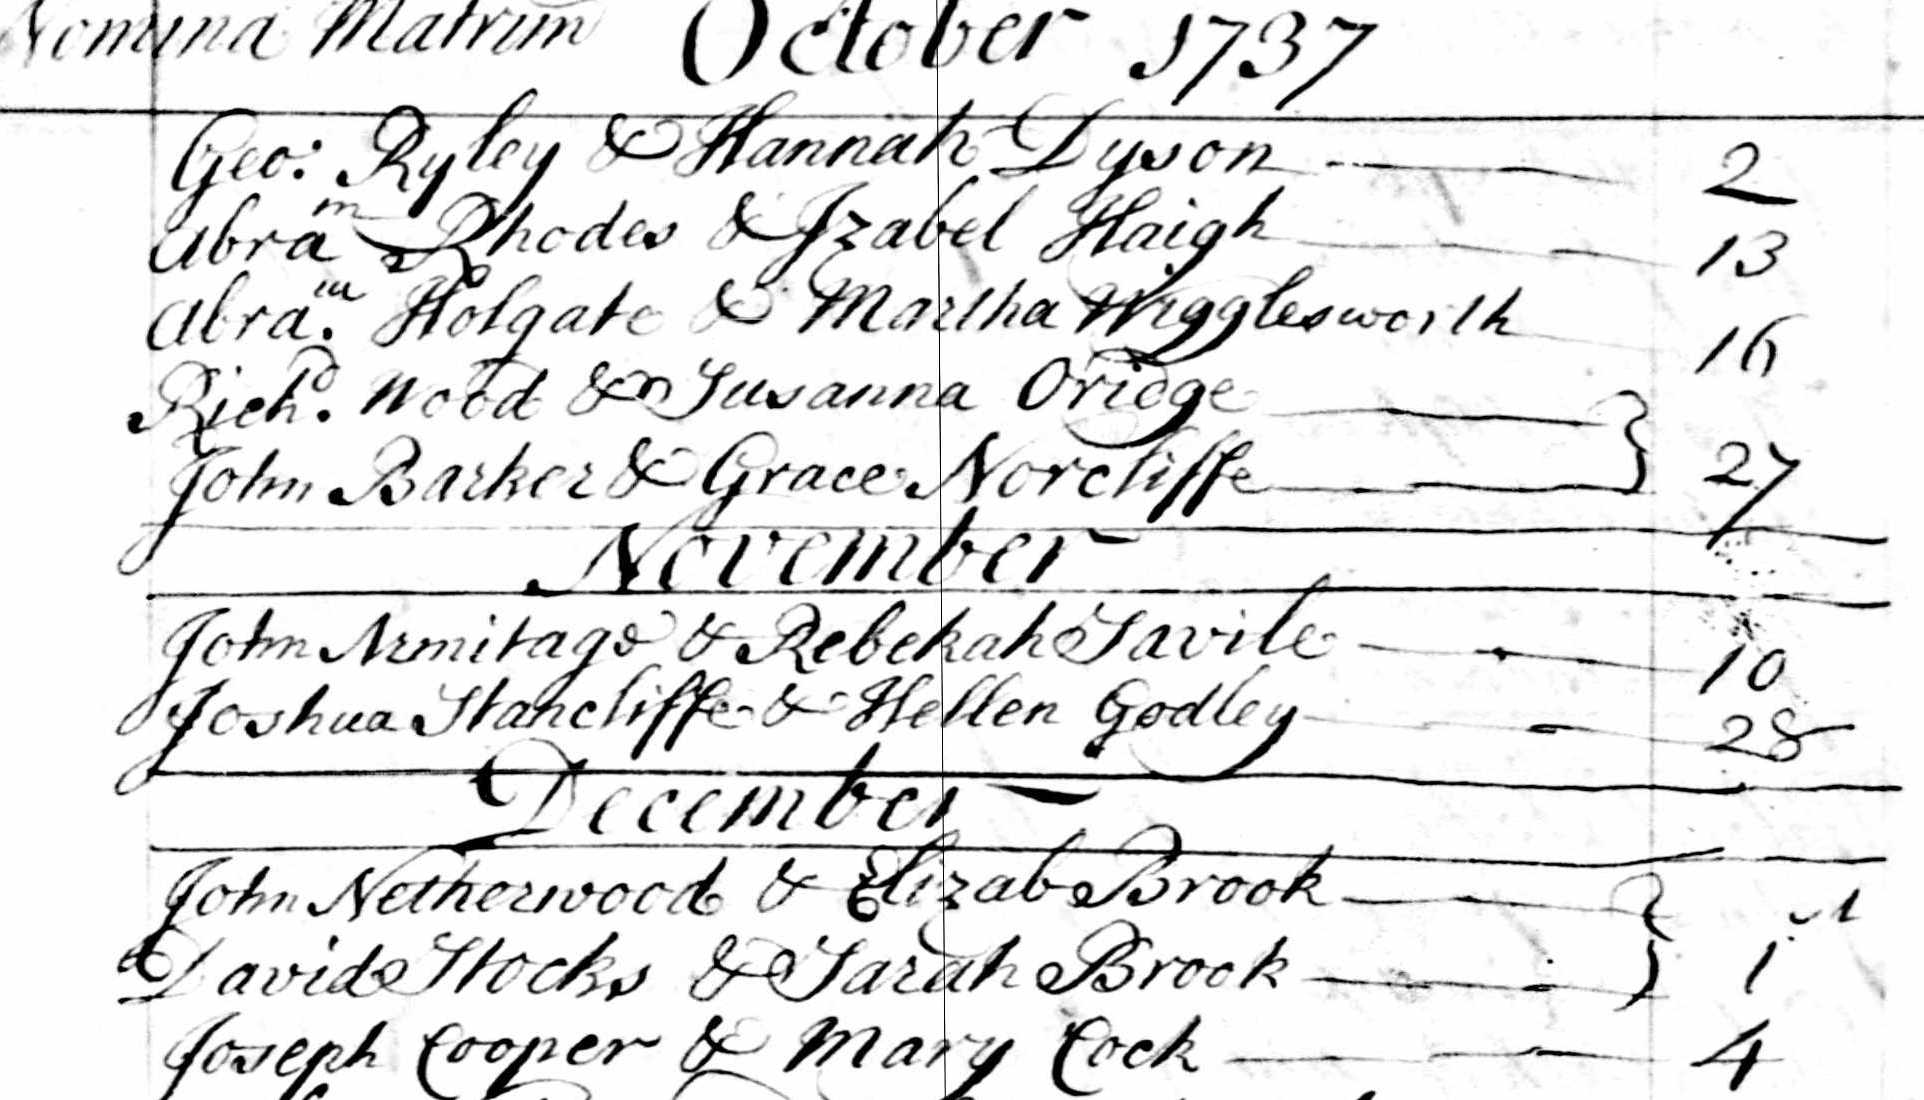 Nomina Matrim October 1737
Geo: Ryley & Hannah Dyson 2
Abra^m Rhodes & Izabel Haigh 13
Abra^m. Holgate & Martha Wigglesworth 16
Rich^d. Wood & Susanna Oridge
John Barker & Grace Norcliffe 27
November
John Armitage & Rebekah Savile 10
Joshua Stancliffe & Hellen Godley 28
December
John Netherwood & Elizab Brook
David Stocks & Sarah Brook 1
Joseph Cooper & Mary Cock 4